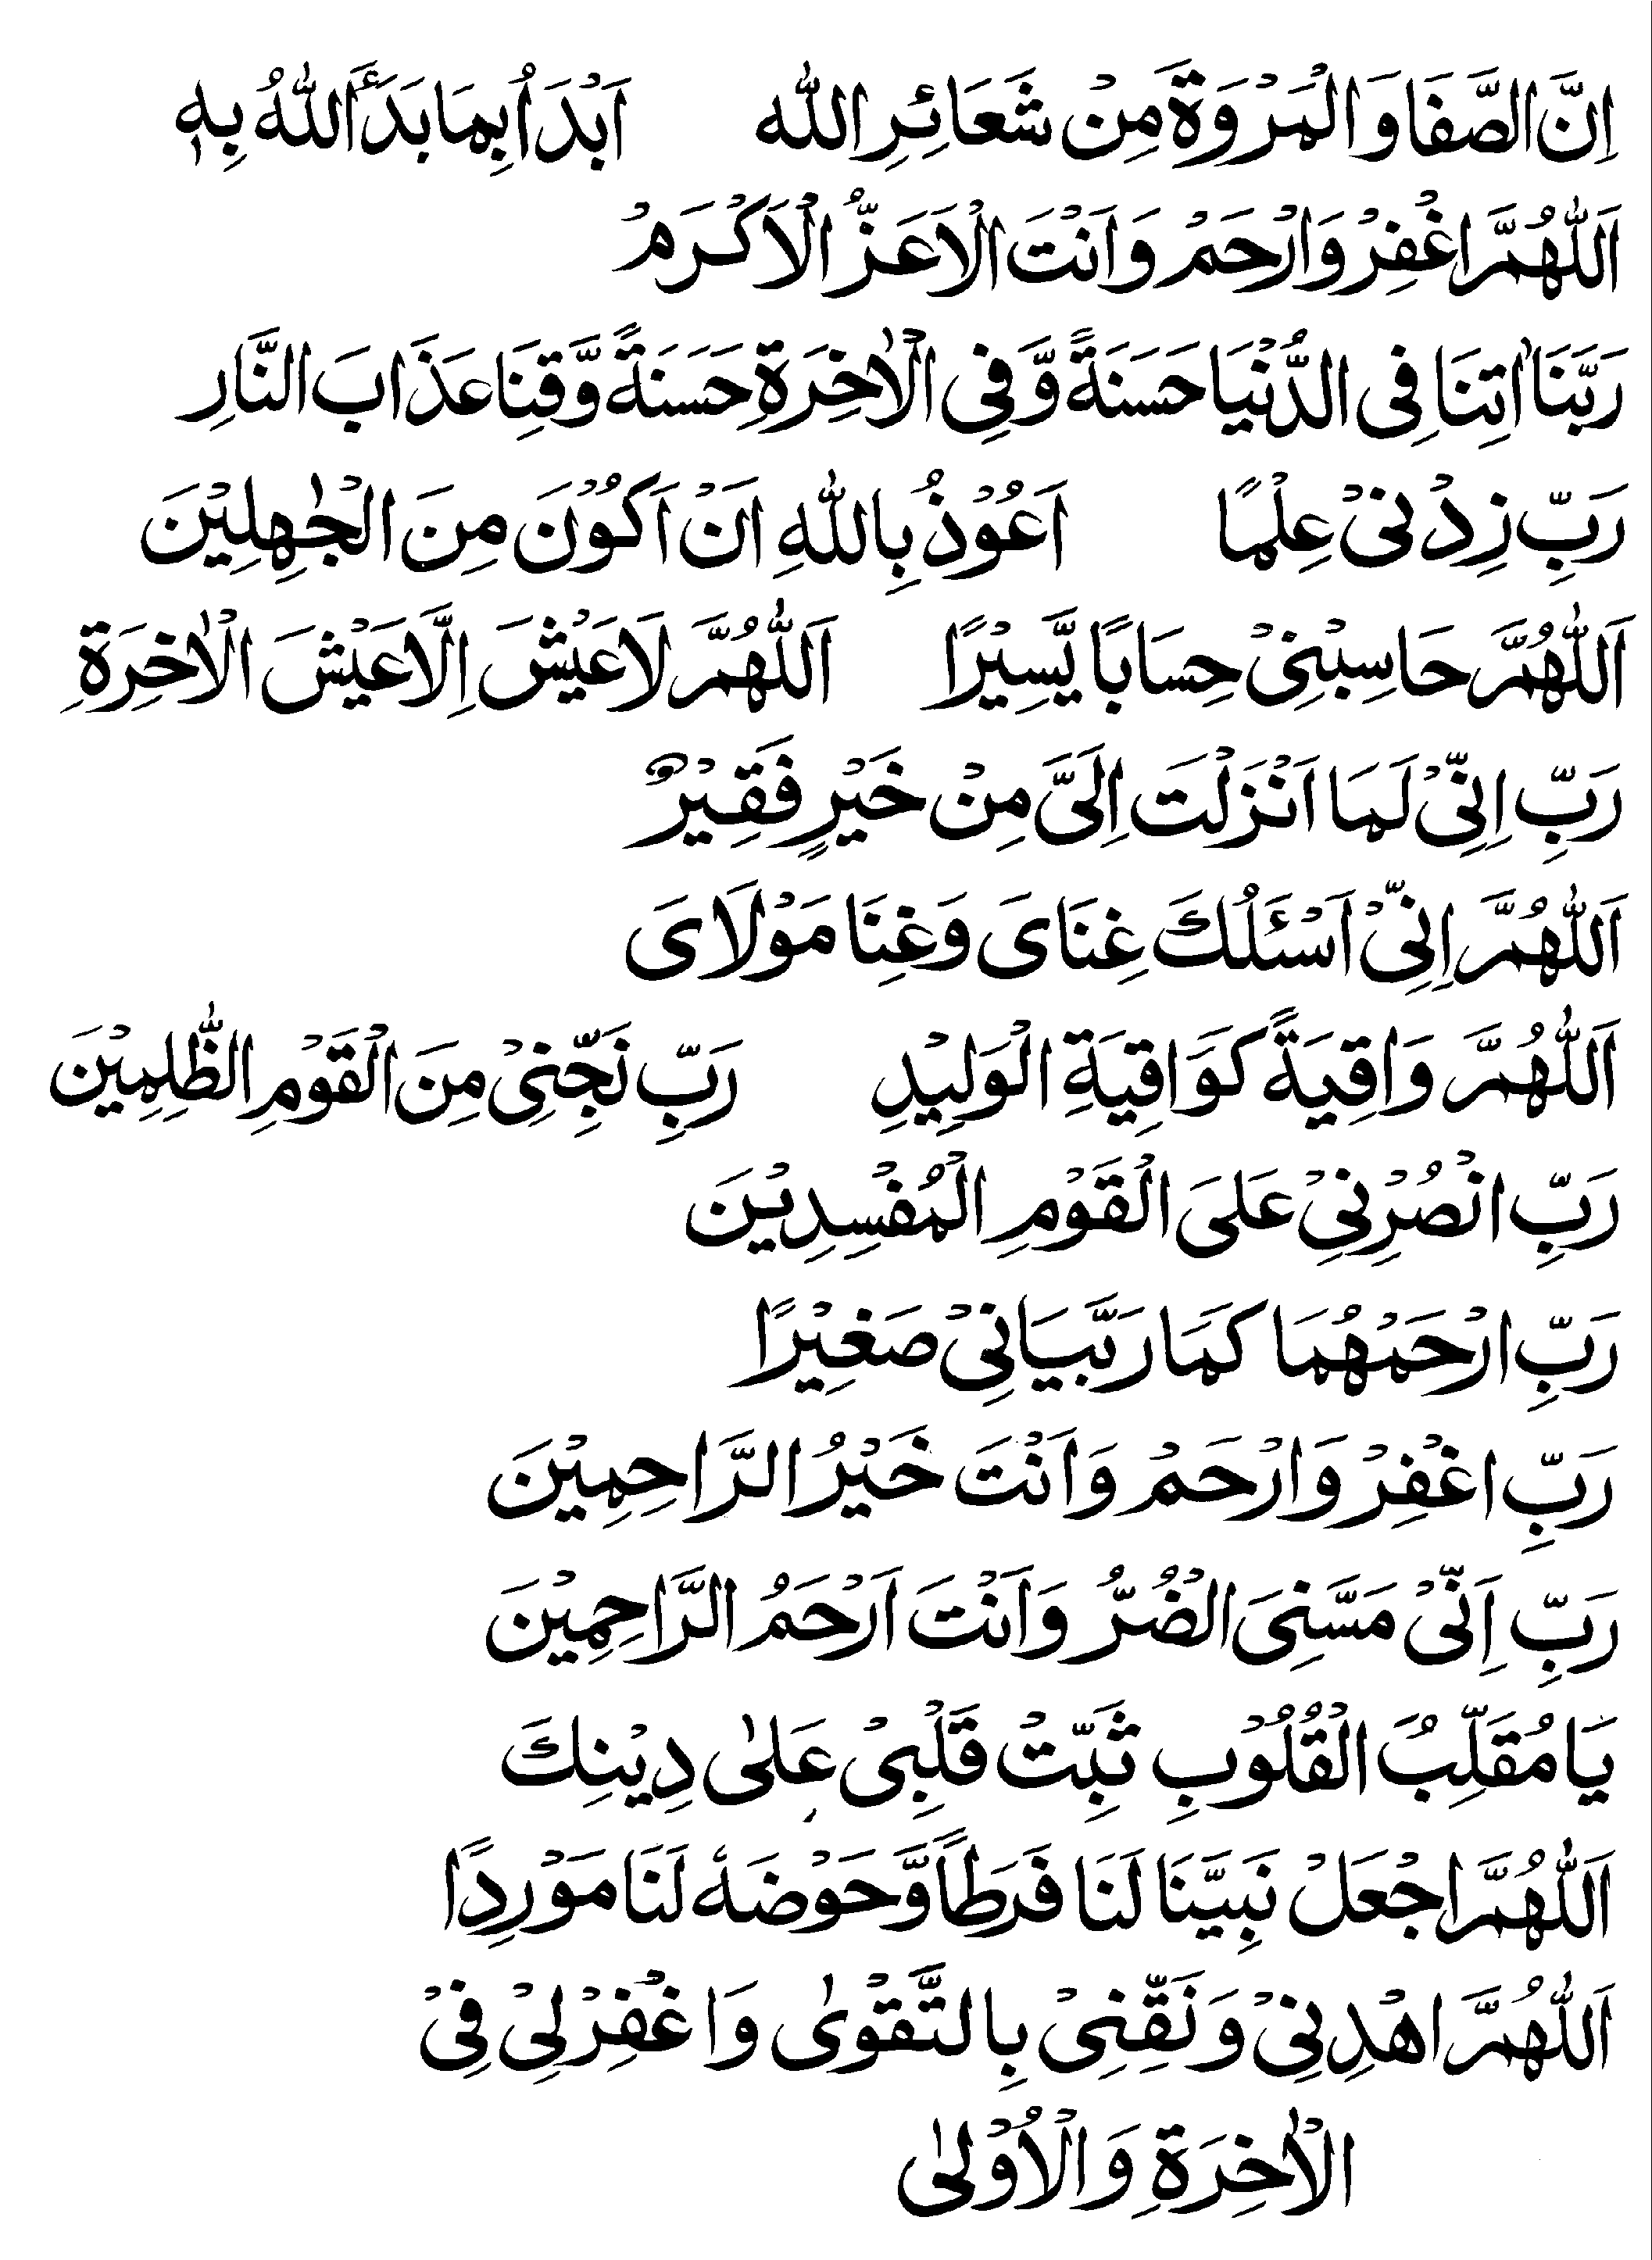 اِنَّ الصَّفَا وَ الْمَرْوَةَ مِنْ شَعَائِرِ اللّٰه اَبْدَاُ بِمَا بَدَءَ اللّٰهُ بِهٖ
اَللّٰهُمَّ اغْفِرْ وَارْحَمْ وَاَنْتَ الْاَعَزُّ الْاَكْرَمُ
رَبَّنَا اٰتِنَا فِى الدُّنْيَا حَسَنَةً وَّفِى الْاٰخِرَةِ حَسَنَةً وَّقِنَا عَذَابَ النَّارِ
رَبِّ زِدْنِىْ عِلْمًا اَعُوْذُ بِاللّٰهِ اَنْ اَكُوْنَ مِنَ الْجٰهِلِيْنَ
اَللّٰهُمَّ حَاسِبْنِىْ حِسَابًا يَّسِيْرًا اَللّٰهُمَّ لَا عَيْشَ اِلَّا عَيْشَ الْاٰخِرَةِ
رَبِّ اِنِّىْ لَمَا اَنْزَلْتَ اِلَىَّ مِنْ خَيْرٍ فَقِيْرٌ
اَللّٰهُمَّ اِنِّىْ اَسْئَلُكَ غِنَاىَ وَغِنَا مَوْلَاىَ
اَللّٰهُمَّ وَاقِيَةً كَوَاقِيَةِ الْوَلِيْدِ رَبِّ نَجِّنِىْ مِنَ الْقَوْمِ الظّٰلِمِيْنَ
رَبِّ انْصُرْنِىْ عَلَى الْقَوْمِ الْمُفْسِدِيْنَ
رَبِّ ارْحَمْهُمَا كَمَا رَبَّيَانِىْ صَغِيْرًا
رَبِّ اغْفِرْ وَارْحَمْ وَاَنْتَ خَيْرُ الرَّاحِمِيْنَ
رَبِّ اِنِّىْ مَسَّنِىَ الْضُرُّ وَاَنْتَ اَرْحَمُ الرَّاحِمِيْنَ
يَا مُقَلِّبُ الْقُلُوْبِ ثَبِّتْ قَلْبِىْ عَلٰى دِيْنِكَ
اَللّٰهُمَّ اجْعَلْ نَبِيَّنَا لَنَا فَرَطاً وَّحَوْضَهٗ لَنَا مَوْرِدًا
اَللّٰهُمَّ اهْدِنِىْ وَنَقِّنِىْ بِالتَّقْوٰى وَاغْفِرْلِىْ فِىْ
الْاٰخِرَةِ وَالْاُوْلٰى